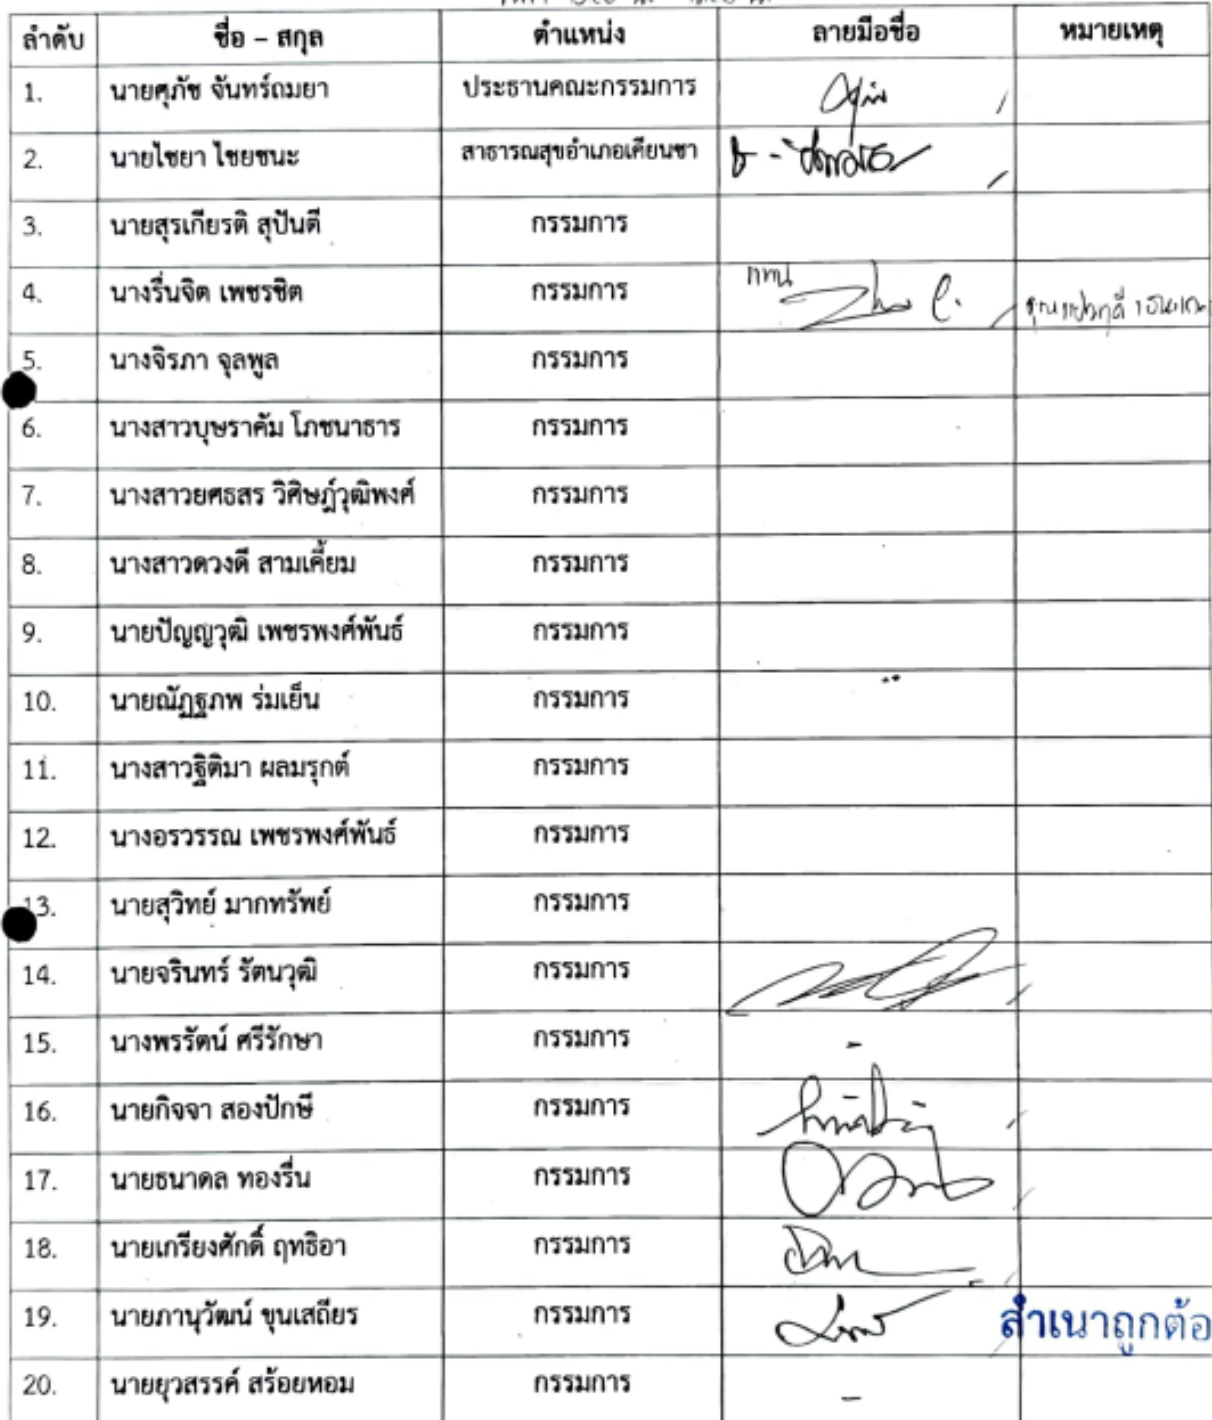 ลำดับ ชื่อ – สกุล ตำแหน่ง ลายมือชื่อ หมายเหตุ
1. นายศุภัช จันทร์ถมยา ประธานคณะกรรมการ
2. นายไชยา ไชยชนะ สาธารณสุขอำเภอเคียนซา
3. นายสุรเกียรติ สุปันตี กรรมการ
4. นางรื่นจิต เพชรชิต กรรมการ แทน
5. นางจิรภา จุลพูล กรรมการ
6. นางสาวบุษราคัม โภชนาธาร กรรมการ
7. นางสาวยศธสร วิศิษฎ์วุฒิพงศ์ กรรมการ
8. นางสาวดวงดี สามเคี้ยม กรรมการ
9. นายปัญญวุฒิ เพชรพงศ์พันธ์ กรรมการ
10. นายณัฏฐภพ ร่มเย็น กรรมการ
11. นางสาวฐิติมา ผลมรุกต์ กรรมการ
12. นางอรวรรณ เพชรพงศ์พันธ์ กรรมการ
13. นายสุวิทย์ มากทรัพย์ กรรมการ
14. นายจรินทร์ รัตนวุฒิ กรรมการ
15. นางพรรัตน์ ศรีรักษา กรรมการ -
16. นายกิจจา สองปักษี กรรมการ
17. นายธนาดล ทองรื่น กรรมการ
18. นายเกรียงศักดิ์ ฤทธิอา กรรมการ
19. นายภานุวัฒน์ ขุนเสถียร กรรมการ สำเนาถูกต้อ
20. นายยุวสรรค์ สร้อยหอม กรรมการ -